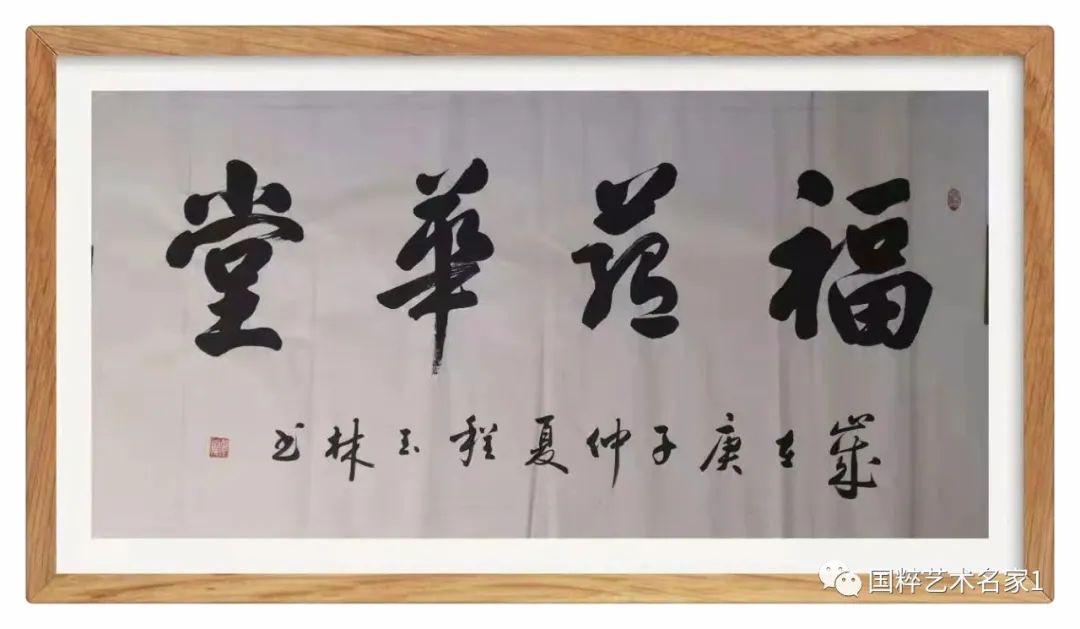 福蕴華堂
歲在庚子仲夏程玉林书
国粹艺术名家1